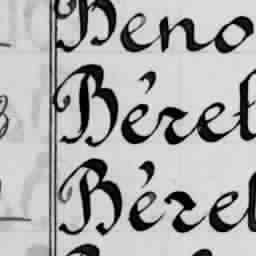 Beno
Béret
Bérel